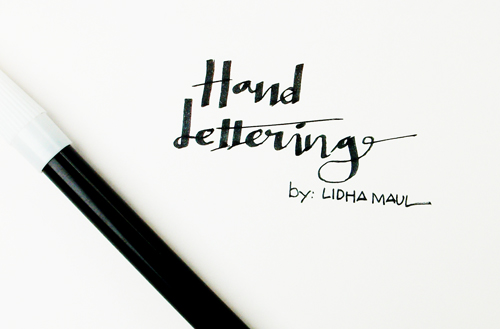 Hand
Lettering
by: LIDHA MAUL